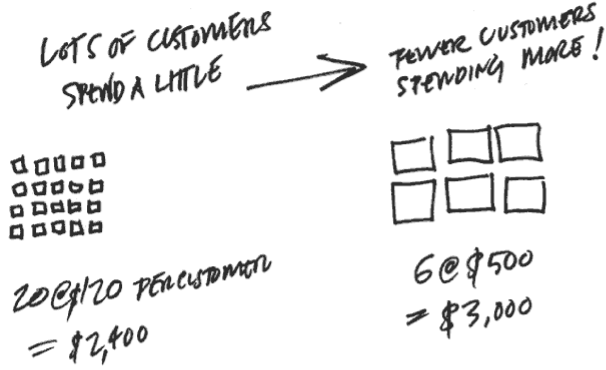 LOTS OF CUSTOMERS
SPEND A LITTLE
FEWER CUSTOMERS
SPENDING MORE!
20@$120 PER CUSTOMER
= $2,400
6@$500
= $3,000